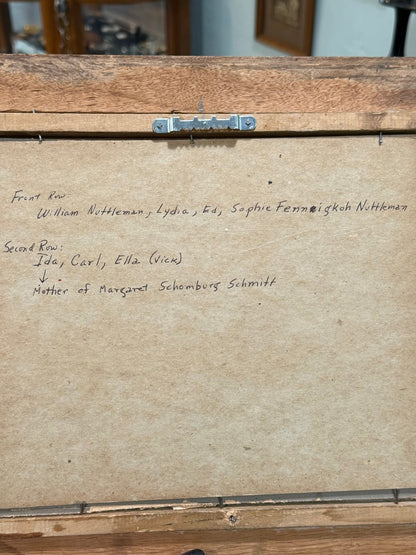 Front Row
William Nuttleman, Lydia, Ed, Sophie Fennigkoh Nuttleman
Second Row:
Ida, Carl, Ella (Vick)
↓
Mother of Margaret Schomburg Schmitt